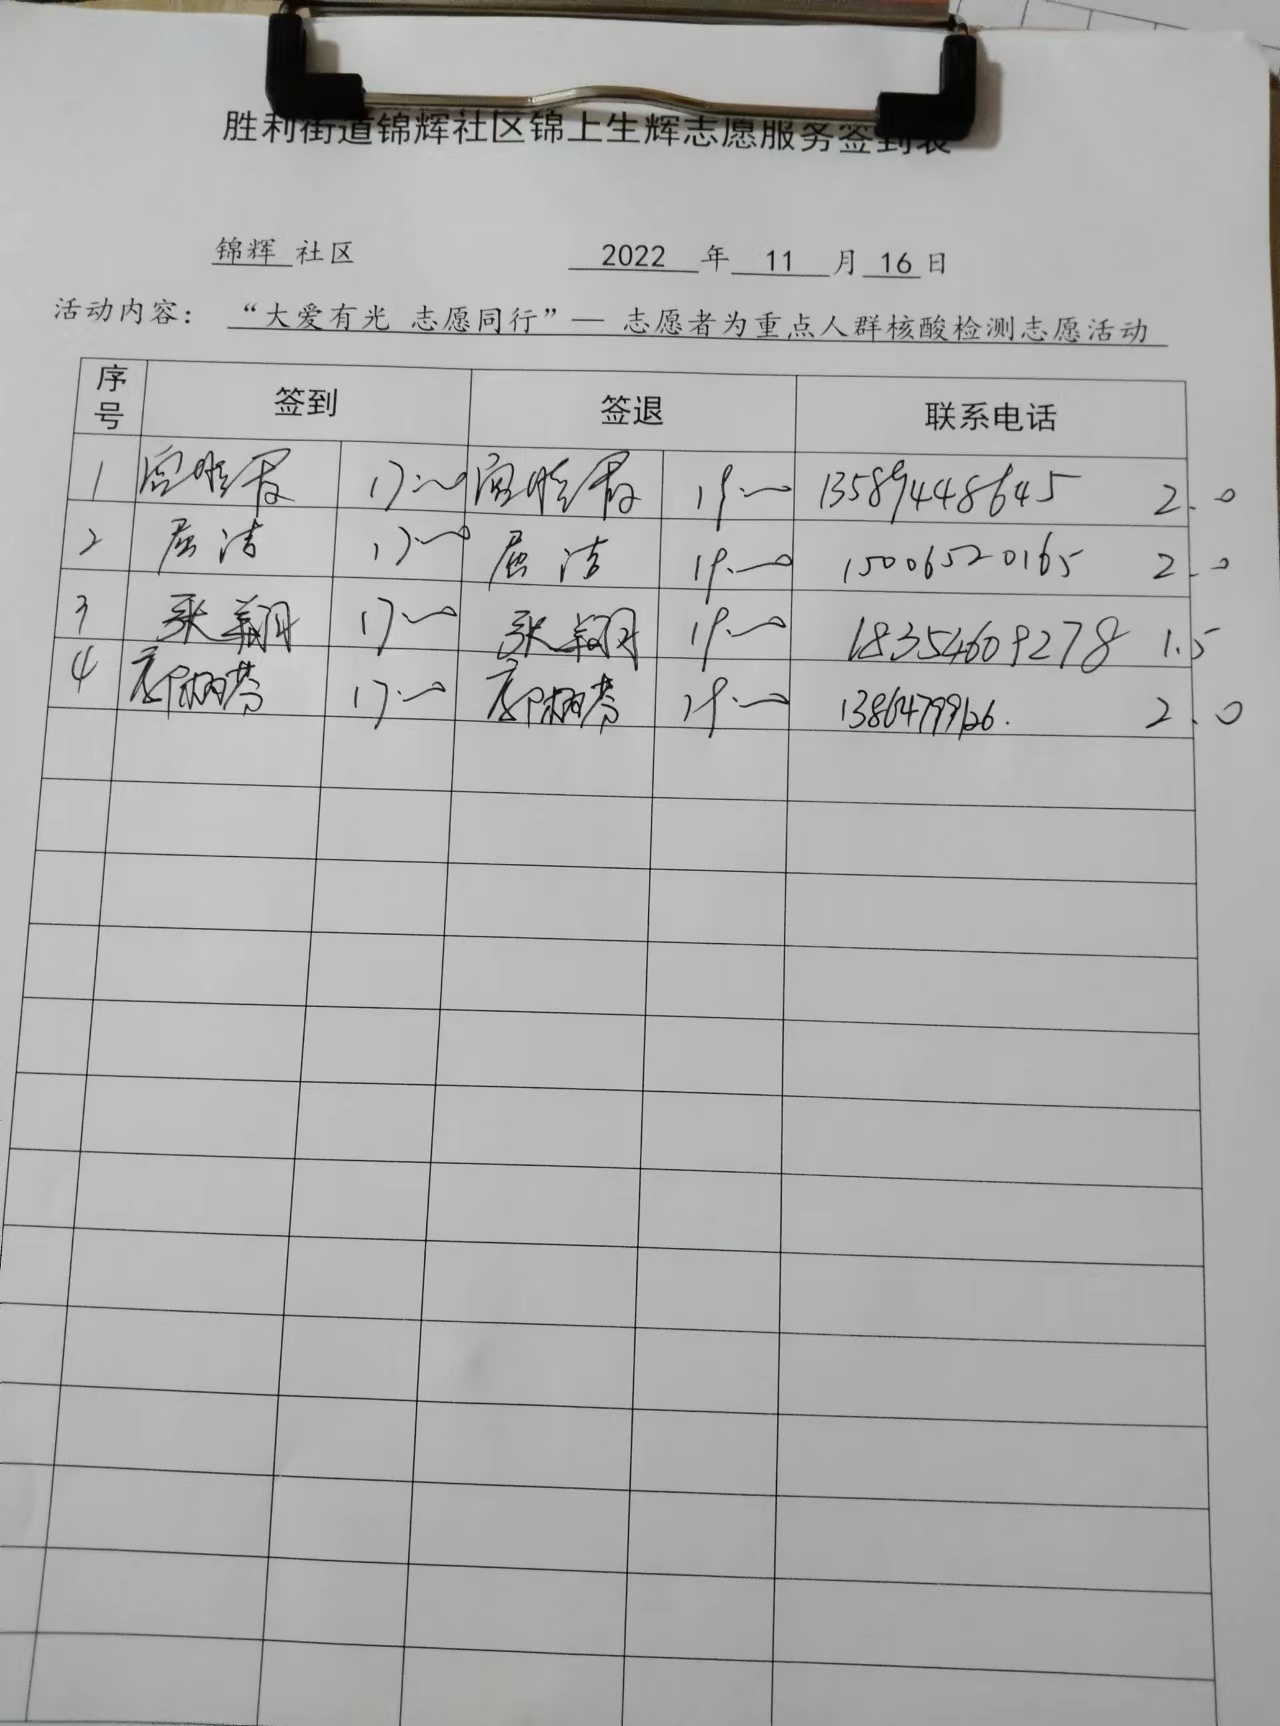 胜利街道锦辉社区锦上生辉志愿服务签到表
锦辉 社区 2022 年 11 月 16 日
活动内容： “大爱有光 志愿同行”— 志愿者为重点人群核酸检测志愿活动
序号 签到 签退 联系电话
1 17:00 19:00 13589448645 2.0
2 屈洁 17:00 屈洁 19:00 15006520165 2.0
3 17:00 19:00 18354609278 1.5
4 17:00 19:00 2.0